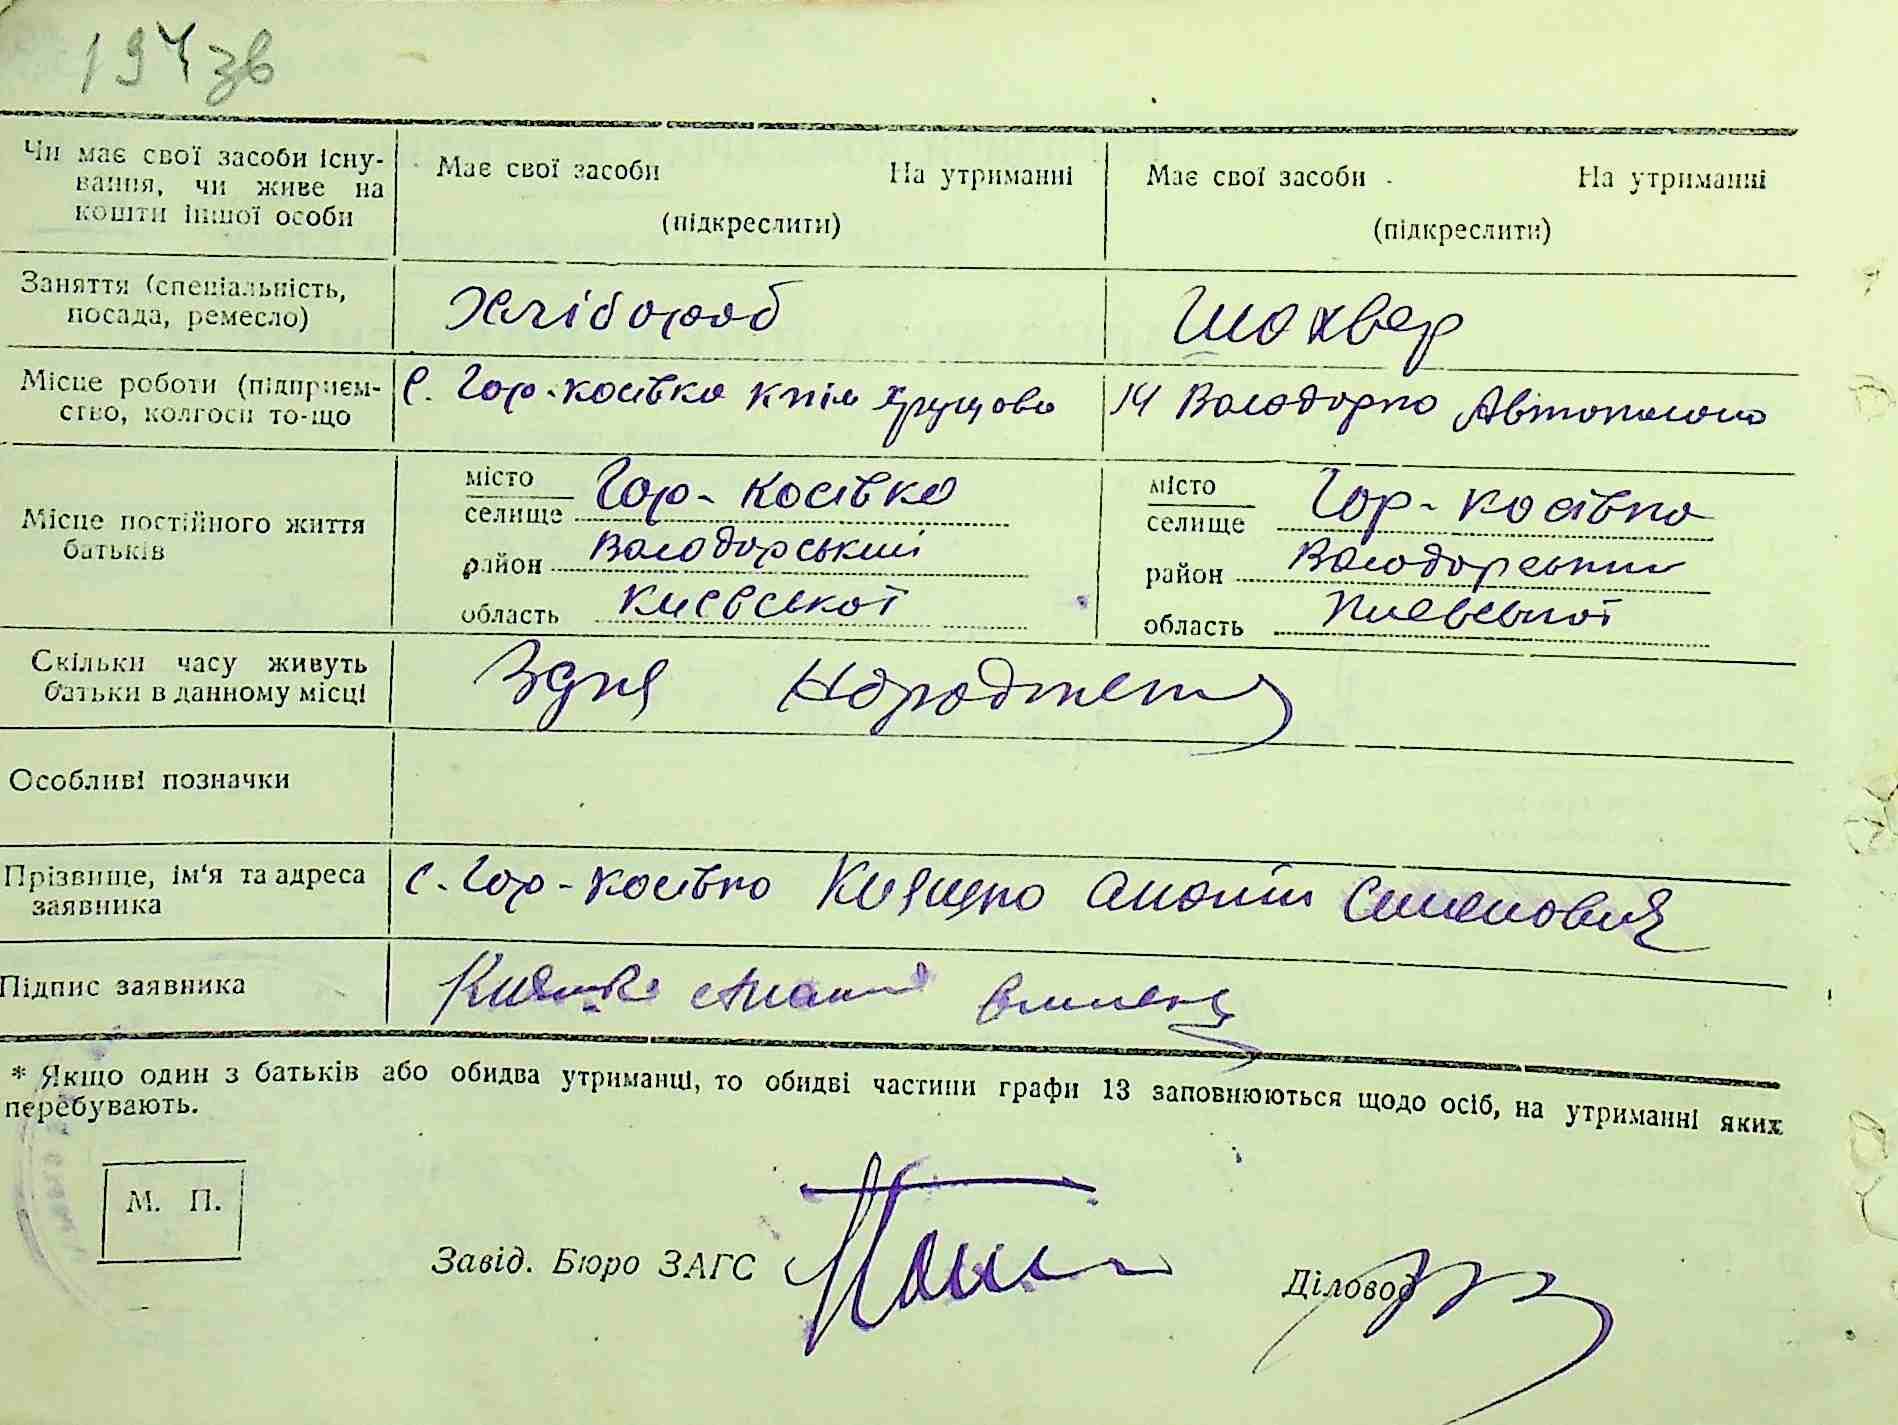 197 зв
Чи має свої засоби існу-
вання, чи живе на
кошти іншої особи
Має свої засоби На утриманні
(підкреслити)
Має свої засоби На утриманні
(підкреслити)
Заняття (спеціальність,
посада, ремесло)
Хлібороб
Шохвер
Місце роботи (підприєм-
ство, колгосп то-що
С. Гор-косівка к ім
М Володарка
Місце постійного життя
батьків
місто
селище Гор-косівка
район Володарський
область Києвської
місто
селище Гор-косівка
район Володарський
область Києвської
Скільки часу живуть
батьки в данному місці
З дня народження
Особливі позначки
Прізвище, ім'я та адреса
заявника
с. Гор-косівка Кияшко Ананій Семенович
Підпис заявника
Кияшко Ананій
* Якщо один з батьків або обидва утриманці, то обидві частини графи 13 заповнюються щодо осіб, на утриманні яких
перебувають.
М. П.
Завід. Бюро ЗАГС
Діловод